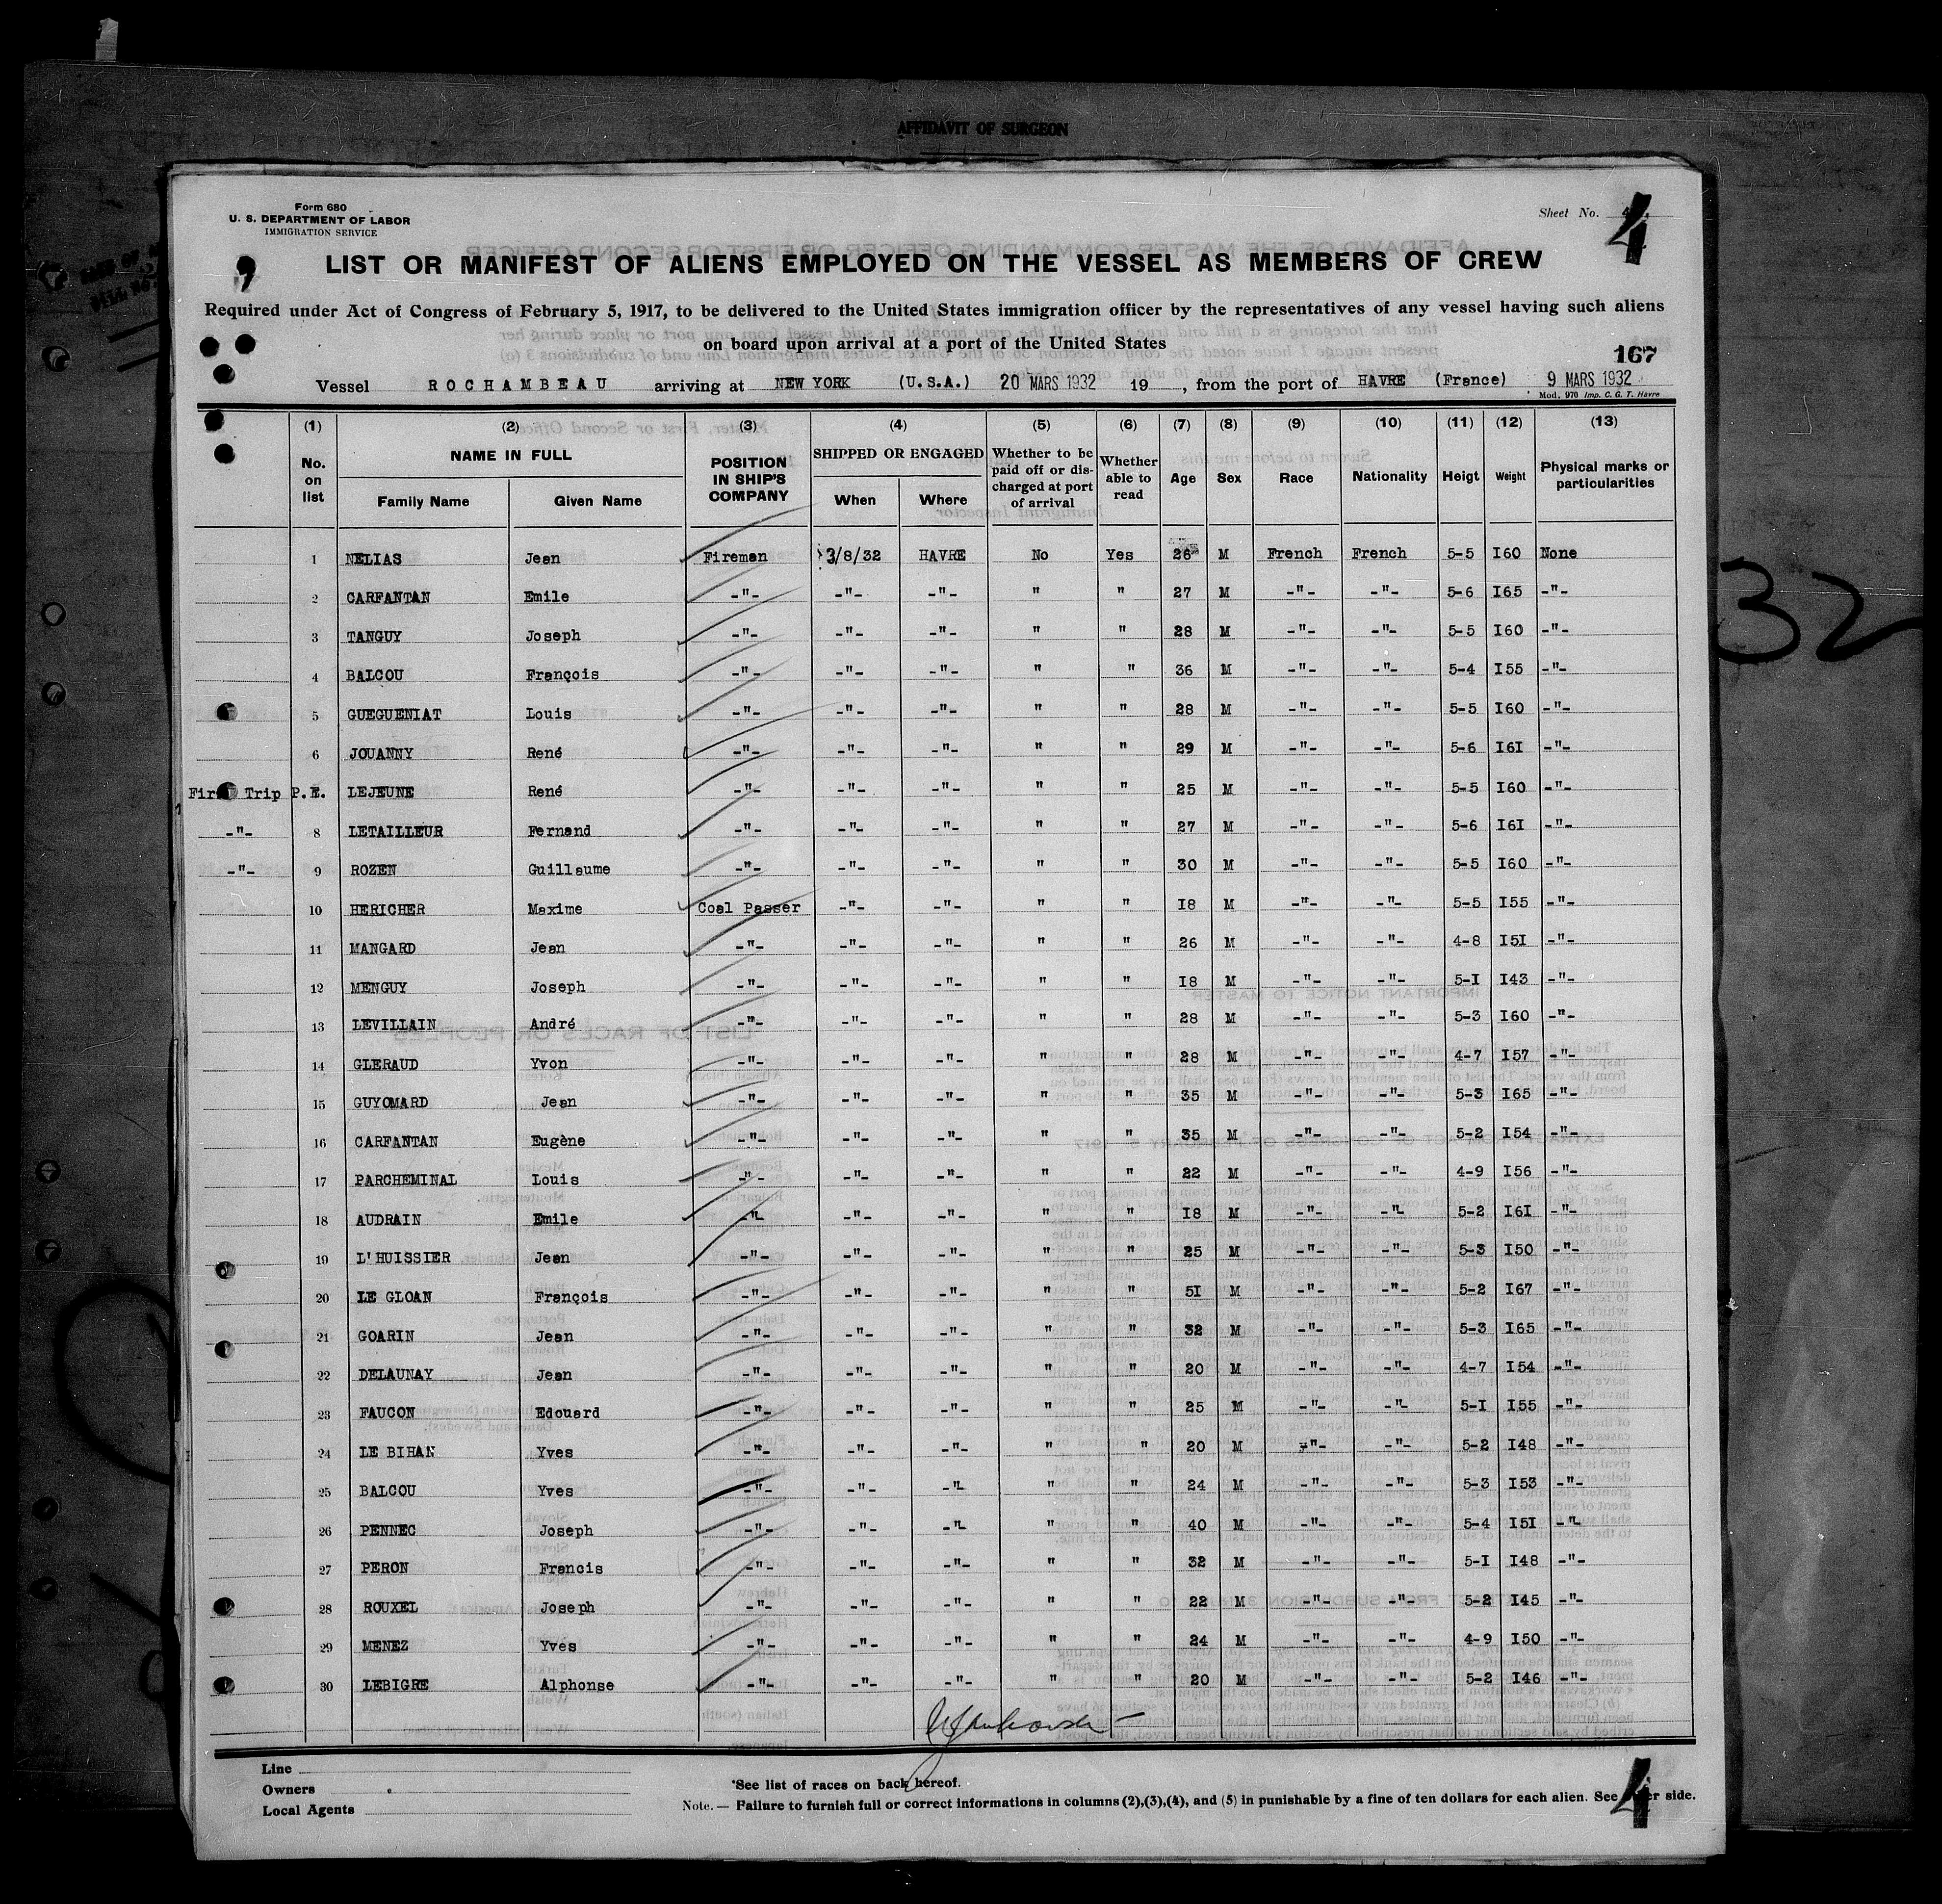 AFFIDAVIT OF SURGEON
Form 680
U. S. DEPARTMENT OF LABOR
IMMIGRATION SERVICE
Sheet No. 4
LIST OR MANIFEST OF ALIENS EMPLOYED ON THE VESSEL AS MEMBERS OF CREW
Required under Act of Congress of February 5, 1917, to be delivered to the United States immigration officer by the representatives of any vessel having such aliens
on board upon arrival at a port of the United States
167
Vessel ROCHAMBEAU arriving at NEW YORK (U.S.A.) 20 MARS 1932 19 , from the port of HAVRE (France) 9 MARS 1932
Mod. 970 Imp. C. G. T. Havre
(1) (2) (3) (4) (5) (6) (7) (8) (9) (10) (11) (12) (13)
No. on list NAME IN FULL Family Name Given Name POSITION IN SHIP'S COMPANY SHIPPED OR ENGAGED When Where Whether to be paid off or discharged at port of arrival Whether able to read Age Sex Race Nationality Heigt Weight Physical marks or particularities
1 NELIAS Jean Fireman 3/8/32 HAVRE No Yes 26 M French French 5-5 I60 None
2 CARFANTAN Emile -"- -"- -"- " " 27 M -"- -"- 5-6 I65 -"-
3 TANGUY Joseph -"- -"- -"- " " 28 M -"- -"- 5-5 I60 -"-
4 BALCOU François -"- -"- -"- " " 36 M -"- -"- 5-4 I55 -"-
5 GUEGUENIAT Louis -"- -"- -"- " " 28 M -"- -"- 5-5 I60 -"-
6 JOUANNY René -"- -"- -"- " " 29 M -"- -"- 5-6 I6I -"-
First Trip P.E. LEJEUNE René -"- -"- -"- " " 25 M -"- -"- 5-5 I60 -"-
-"- 8 LETAILLEUR Fernand -"- -"- -"- " " 27 M -"- -"- 5-6 I6I -"-
-"- 9 ROZEN Guillaume -"- -"- -"- " " 30 M -"- -"- 5-5 I60 -"-
10 HERICHER Maxime Coal Passer -"- -"- " " I8 M -"- -"- 5-5 I55 -"-
11 MANGARD Jean -"- -"- -"- " " 26 M -"- -"- 4-8 I5I -"-
12 MENGUY Joseph -"- -"- -"- " " I8 M -"- -"- 5-I I43 -"-
13 LEVILLAIN André -"- -"- -"- " " 28 M -"- -"- 5-3 I60 -"-
14 GLERAUD Yvon -"- -"- -"- " " 28 M -"- -"- 4-7 I57 -"-
15 GUYOMARD Jean -"- -"- -"- " " 35 M -"- -"- 5-3 I65 -"-
16 CARFANTAN Eugène -"- -"- -"- " " 35 M -"- -"- 5-2 I54 -"-
17 PARCHEMINAL Louis -"- -"- -"- " " 22 M -"- -"- 4-9 I56 -"-
18 AUDRAIN Emile -"- -"- -"- " " I8 M -"- -"- 5-2 I6I -"-
19 L'HUISSIER Jean -"- -"- -"- " " 25 M -"- -"- 5-3 I50 -"-
20 LE GLOAN François -"- -"- -"- " " 5I M -"- -"- 5-2 I67 -"-
21 GOARIN Jean -"- -"- -"- " " 32 M -"- -"- 5-3 I65 -"-
22 DELAUNAY Jean -"- -"- -"- " " 20 M -"- -"- 4-7 I54 -"-
23 FAUCON Edouard -"- -"- -"- " " 25 M -"- -"- 5-I I55 -"-
24 LE BIHAN Yves -"- -"- -"- " " 20 M -"- -"- 5-2 I48 -"-
25 BALCOU Yves -"- -"- -"- " " 24 M -"- -"- 5-3 I53 -"-
26 PENNEC Joseph -"- -"- -"- " " 40 M -"- -"- 5-4 I5I -"-
27 PERON Francis -"- -"- -"- " " 32 M -"- -"- 5-I I48 -"-
28 ROUXEL Joseph -"- -"- -"- " " 22 M -"- -"- 5-2 I45 -"-
29 MENEZ Yves -"- -"- -"- " " 24 M -"- -"- 4-9 I50 -"-
30 LEBIGRE Alphonse -"- -"- -"- " " 20 M -"- -"- 5-2 I46 -"-
Line
Owners
Local Agents
*See list of races on back hereof.
Note. — Failure to furnish full or correct informations in columns (2),(3),(4), and (5) in punishable by a fine of ten dollars for each alien. See other side.
4
32